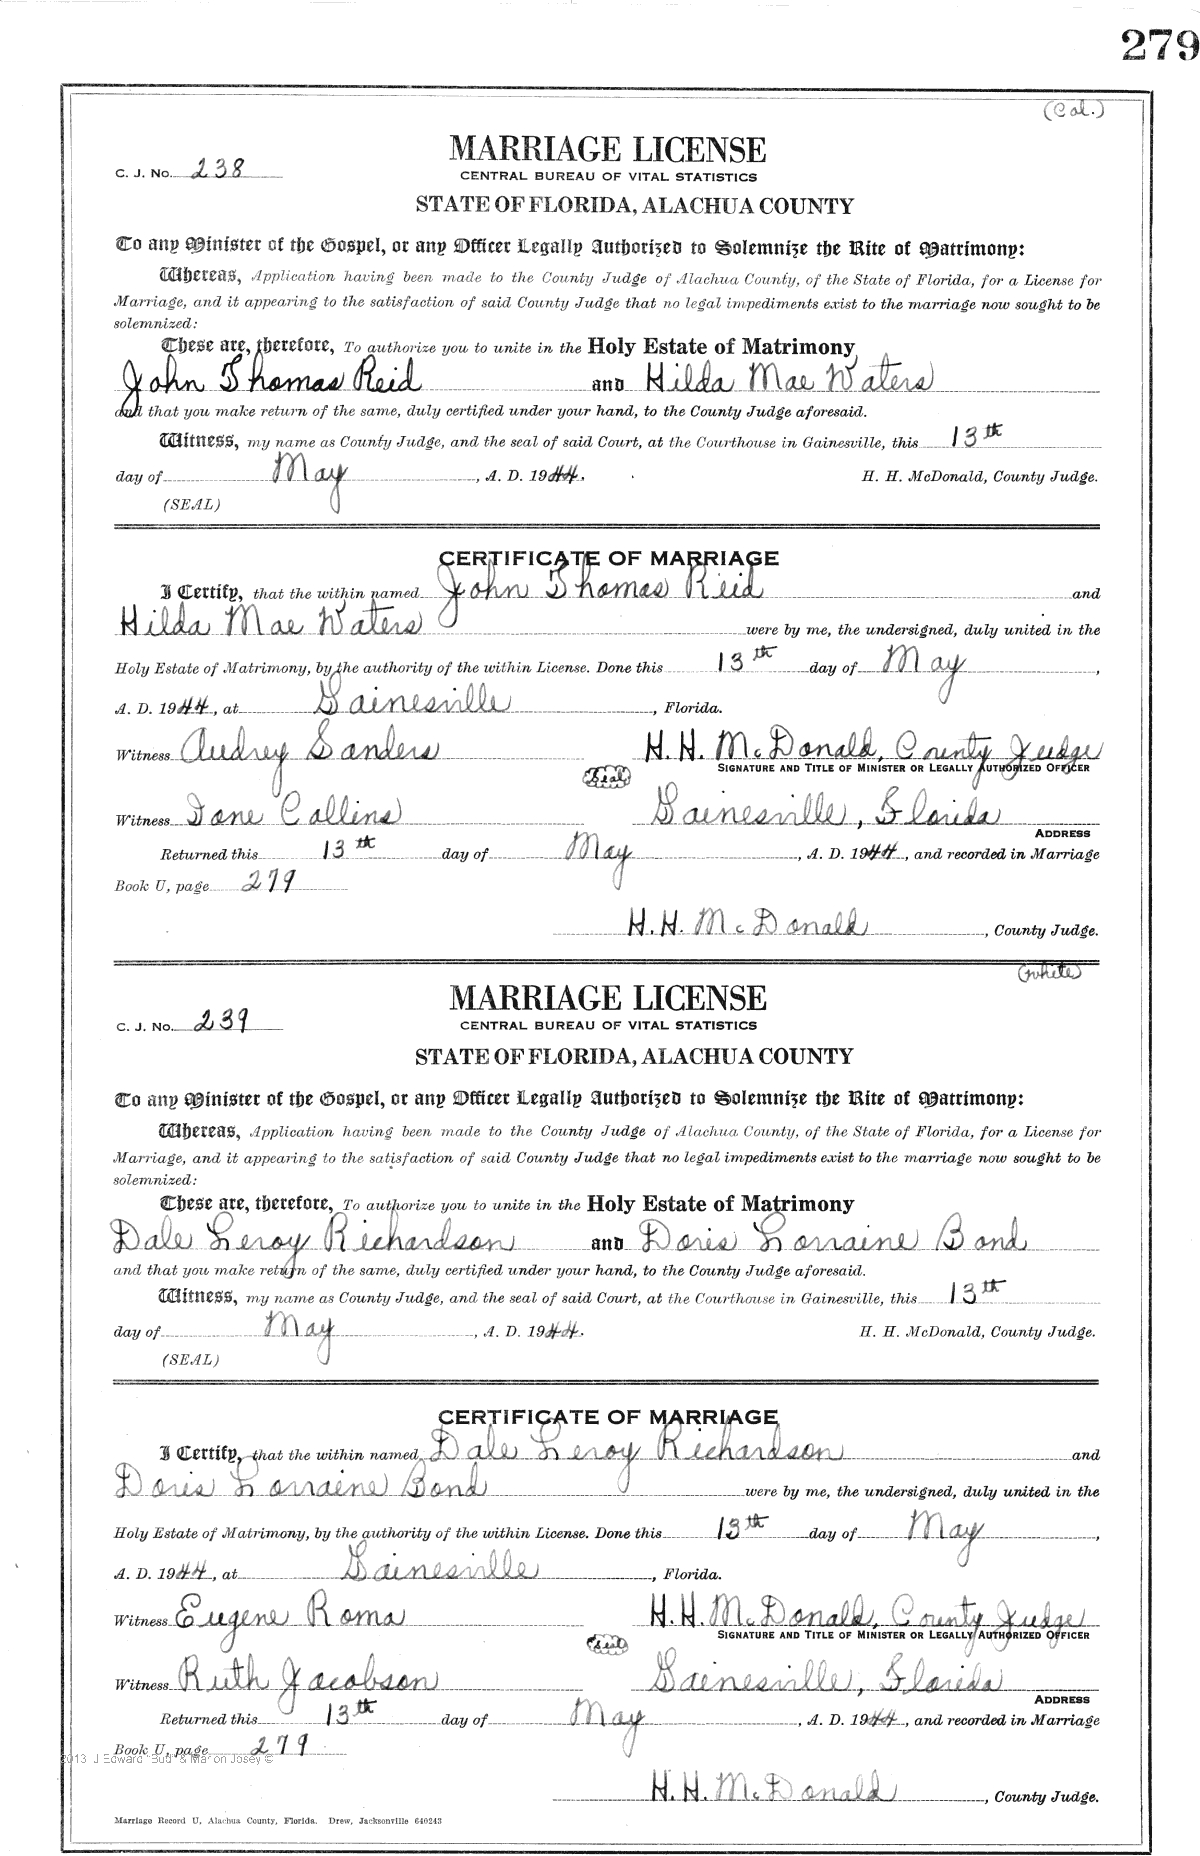 279
(Col.)
MARRIAGE LICENSE
C. J. No. 238
CENTRAL BUREAU OF VITAL STATISTICS
STATE OF FLORIDA, ALACHUA COUNTY
To any Minister of the Gospel, or any Officer Legally Authorized to Solemnize the Rite of Matrimony:
Whereas, Application having been made to the County Judge of Alachua County, of the State of Florida, for a License for
Marriage, and it appearing to the satisfaction of said County Judge that no legal impediments exist to the marriage now sought to be
solemnized:
These are, therefore, To authorize you to unite in the Holy Estate of Matrimony
John Thomas Reid and Hilda Mae Waters
and that you make return of the same, duly certified under your hand, to the County Judge aforesaid.
Witness, my name as County Judge, and the seal of said Court, at the Courthouse in Gainesville, this 13th
day of May, A. D. 1944. H. H. McDonald, County Judge.
(SEAL)
CERTIFICATE OF MARRIAGE
I Certify, that the within named John Thomas Reid and
Hilda Mae Waters were by me, the undersigned, duly united in the
Holy Estate of Matrimony, by the authority of the within License. Done this 13th day of May,
A. D. 1944, at Gainesville, Florida.
Witness Audrey Sanders H. H. McDonald, County Judge
SIGNATURE AND TITLE OF MINISTER OR LEGALLY AUTHORIZED OFFICER
(Seal)
Witness Jane Collins Gainesville, Florida
ADDRESS
Returned this 13th day of May, A. D. 1944, and recorded in Marriage
Book U, page 279
H. H. McDonald, County Judge.
(white)
MARRIAGE LICENSE
C. J. No. 239
CENTRAL BUREAU OF VITAL STATISTICS
STATE OF FLORIDA, ALACHUA COUNTY
To any Minister of the Gospel, or any Officer Legally Authorized to Solemnize the Rite of Matrimony:
Whereas, Application having been made to the County Judge of Alachua County, of the State of Florida, for a License for
Marriage, and it appearing to the satisfaction of said County Judge that no legal impediments exist to the marriage now sought to be
solemnized:
These are, therefore, To authorize you to unite in the Holy Estate of Matrimony
Dale Leroy Richardson and Doris Lorraine Bond
and that you make return of the same, duly certified under your hand, to the County Judge aforesaid.
Witness, my name as County Judge, and the seal of said Court, at the Courthouse in Gainesville, this 13th
day of May, A. D. 1944. H. H. McDonald, County Judge.
(SEAL)
CERTIFICATE OF MARRIAGE
I Certify, that the within named Dale Leroy Richardson and
Doris Lorraine Bond were by me, the undersigned, duly united in the
Holy Estate of Matrimony, by the authority of the within License. Done this 13th day of May,
A. D. 1944, at Gainesville, Florida.
Witness Eugene Roma H. H. McDonald, County Judge
SIGNATURE AND TITLE OF MINISTER OR LEGALLY AUTHORIZED OFFICER
(Seal)
Witness Ruth Jacobson Gainesville, Florida
ADDRESS
Returned this 13th day of May, A. D. 1944, and recorded in Marriage
Book U, page 279
2013 J Edward "Bud" & Marion Josey ©
H. H. McDonald, County Judge.
Marriage Record U, Alachua County, Florida. Drew, Jacksonville 640243